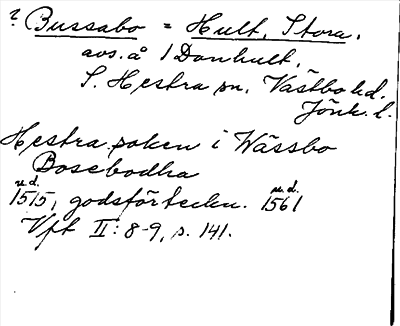 ? Bussabo = Hult, Stora,
avs. å 1 Danhult,
S. Hestra sn, Västbo hd.
Jönk. l.
Hestra soken i Wässbo
Bosebodha
u.d. u.d.
1515, godsförteckn. 1561
Vft II: 8-9, s. 141.